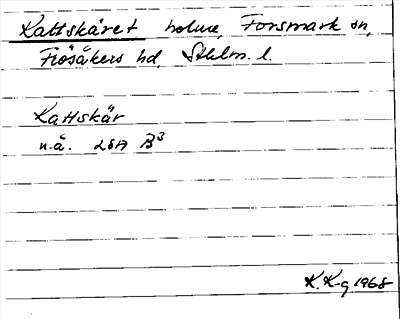 Kattskäret holme, Forsmark sn,
Frösåkers hd, Sthlm. l.
Kattskär
n.ä. LSA B3
K. K-g 1968